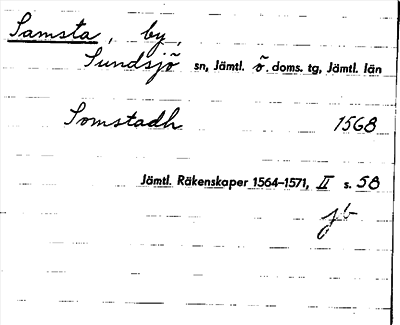 Samsta, by,
Sundsjö sn, Jämtl. ö. doms. tg, Jämtl. län
Somstadh 1568
Jämtl. Räkenskaper 1564–1571, II s. 58